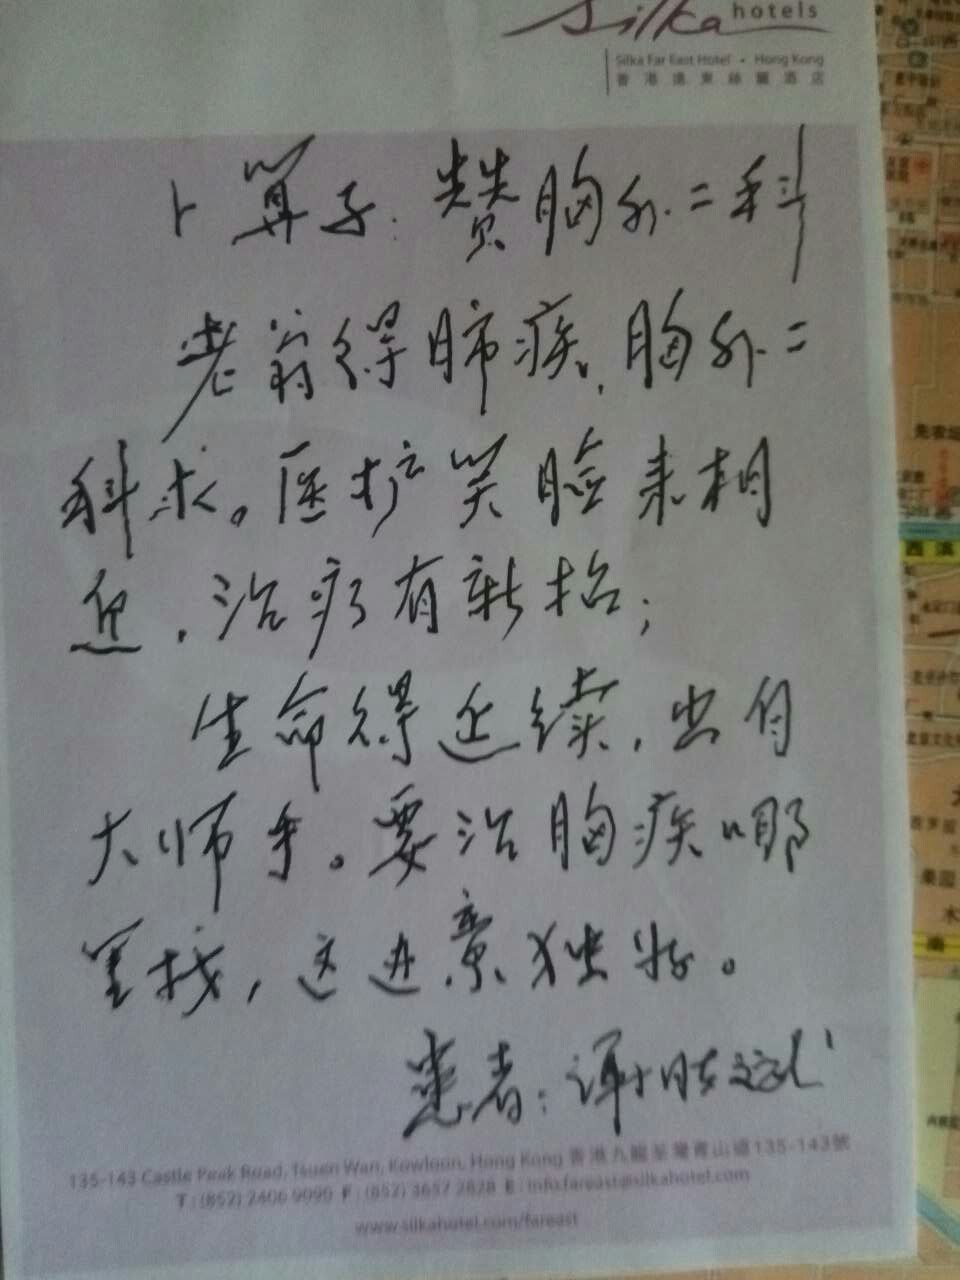 Silka hotels
Silka Far East Hotel • Hong Kong
香港遠東絲麗酒店
卜算子:赞胸外二科
老翁得肺疾,胸外二
科求。医护笑脸来相
迎,治疗有新招;
生命得延续,出自
大师手。要治胸疾哪
里找,这边景独好。
患者:谭
135-143 Castle Peak Road, Tsuen Wan, Kowloon, Hong Kong 香港九龍荃灣青山道135-143號
T : (852) 2406 9090 F : (852) 3657 2828 E : info.fareast@silkahotel.com
www.silkahotel.com/fareast